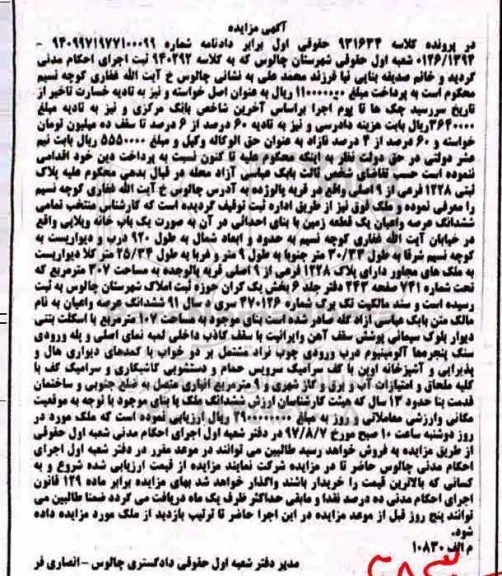 آگهی مزایده
در پرونده کلاسه ۹۳۱۶۳۴ حقوقی اول برابر دادنامه شماره ۹۳۰۹۹۷۱۹۷۷۱۰۰۰۹۹ -
۰۱۲۶/۱۳۹۴ شعبه اول حقوقی شهرستان چالوس که به کلاسه ۹۴۰۲۹۲ ثبت اجرای احکام مدنی
گردید و خانم صدیقه بنایی نیا فرزند محمد علی به نشانی چالوس خ آیت الله غفاری کوچه نسیم
محکوم است به پرداخت مبلغ ۱۱۰۰۰۰۰۰۰ ریال به عنوان اصل خواسته و نیز به تادیه خسارت تاخیر از
تاریخ سررسید چک ها تا یوم اجرا براساس آخرین شاخص بانک مرکزی و نیز به تادیه مبلغ
۳۶۴۰۰۰۰ ریال بابت هزینه دادرسی و نیز به تادیه ۶۰ درصد از ۶ درصد تا سقف ده میلیون تومان
خواسته و ۶۰ درصد از ۴ درصد نازاد به عنوان حق الوکاله وکیل و مبلغ ۵۵۵۰۰۰۰ ریال بابت نیم
عشر دولتی در حق دولت نظر به اینکه محکوم علیه تا کنون نسبت به پرداخت دین خود اقدامی
ننموده است حسب تقاضای شخص ثالث بابک عباسی آزاد محله در قبال بدهی محکوم علیه پلاک
ثبتی ۱۲۲۸ فرعی از ۹ اصلی واقع در قریه والوژده به آدرس چالوس خ آیت الله غفاری کوچه نسیم
را معرفی نموده و ملک فوق نیز از طریق اداره ثبت توقیف گردیده است که کارشناس منتخب تمامی
ششدانگ عرصه واعیان یک قطعه زمین با بنای احداثی در آن به صورت یک باب خانه ویلایی واقع
در خیابان آیت الله غفاری کوچه نسیم به حدود و ابعاد شمال به طول ۹۲۰ درب و دیواریست به
کوچه نسیم شرقا به طول ۳۰/۳۳ متر جنوبا به طول ۹ متر و غربا به طول ۲۵/۳۴ متر کلا دیواریست
به ملک های مجاور دارای پلاک ۱۲۲۸ فرعی از ۹ اصلی قریه پالوجده به مساحت ۳۰۷ مترمربع که
تحت شماره ۷۴۱ صفحه ۴۴۳ دفتر جلد ۶ بخش یک گران حوزه ثبت املاک شهرستان چالوس به ثبت
رسیده است و سند مالکیت تک برگ شماره ۴۷۰۱۲۶ سری د سال ۹۱ ششدانگ عرصه واعیان به نام
مالک متن بابک عباسی آزاد گله صادر شده است بنای موجود به مساحت ۱۰۷ مترمربع با اسکلت بتنی
دیوار بلوک سیمانی پوشش سقف آهن وایرانیت با سقف کاذب داخلی لمبه نمای اصلی و پله ورودی
سنگ پنجرهها آلومینیوم درب ورودی چوب نراد مشتمل بر دو خواب با کمدهای دیواری هال و
پذیرایی و آشپزخانه اوپن با کف سرامیک سرویس حمام و دستشویی کاشیکاری و سرامیک کف با
کلیه ملحقات و امتیازات آب و برق و گاز شهری و ۹ مترمربع انباری متصل به ضلع جنوبی و ساختمان
قدمت بنا حدود ۱۳ سال که هیئت کارشناسان ارزش ششدانگ ملک با بنای موجود با توجه به موقعیت
مکانی وارزشی معاملاتی و روز به مبلغ ریال ارزیابی نموده است که ملک مورد در
روز دوشنبه ساعت ۱۰ صبح مورخ ۹۷/۸/۷ در دفتر شعبه اول اجرای احکام مدنی شعبه اول حقوقی
از طریق مزایده به فروش خواهد رسید طالبین می توانند در موعد مقرر در دفتر شعبه اول اجرای
احکام مدنی چالوس حاضر تا در مزایده شرکت نمایند مزایده از قیمت ارزیابی شده شروع و به
کسانی که بالاترین قیمت را خریدار باشند واگذار خواهد شد بهای مزایده برابر ماده ۱۲۹ قانون
اجرای احکام مدنی ده درصد نقدا و مابقی حداکثر ظرف یک ماه دریافت می گردد ضمنا طالبین می
توانند پنج روز قبل از موعد مزایده در این اجرا حاضر تا ترتیب بازدید از ملک مورد مزایده داده
شود.
م الف ۱۰۸۳۰
مدیر دفتر شعبه اول حقوقی دادگستری چالوس - انصاری فر